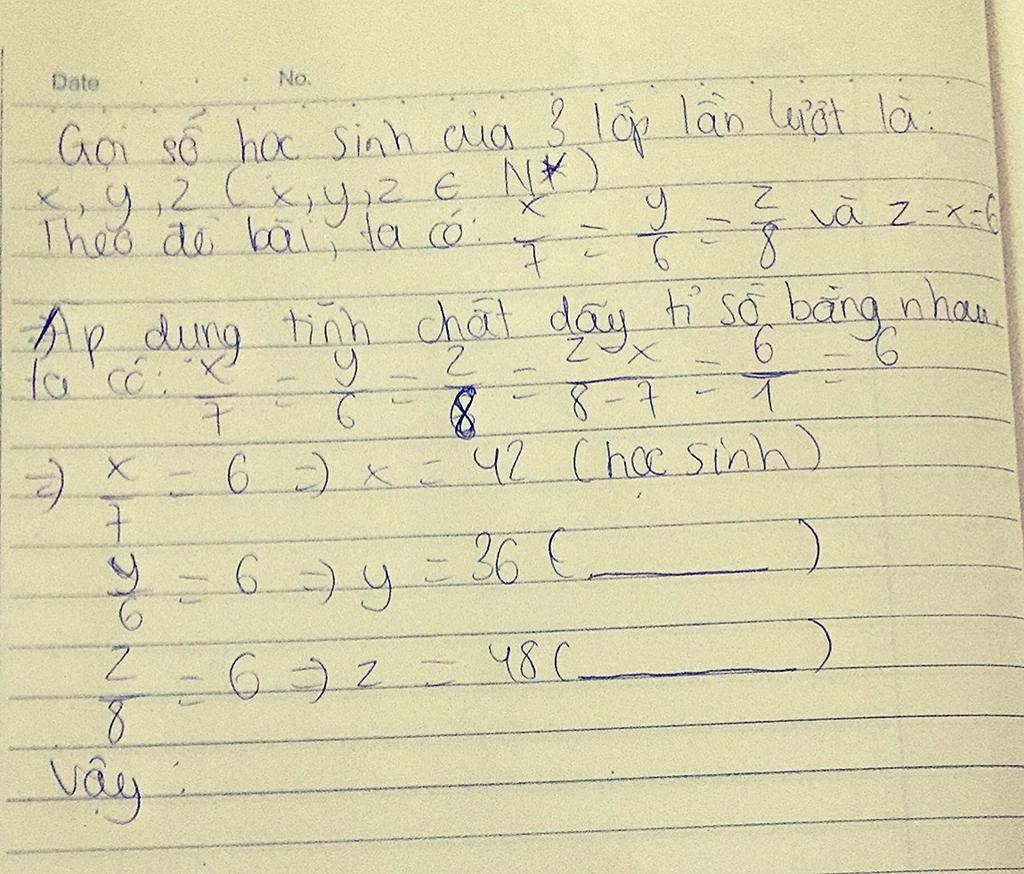 Date No.
Gọi số học sinh của 3 lớp lần lượt là:
x, y, z (x, y, z ∈ N*)
Theo đề bài, ta có: x/7 = y/6 = z/8 và z - x = 6
Áp dụng tính chất dãy tỉ số bằng nhau
ta có: x/7 = y/6 = z/8 = z - x/8 - 7 = 6/1 = 6
=> x/7 = 6 => x = 42 (học sinh)
y/6 = 6 => y = 36 (______)
z/8 = 6 => z = 48 (______)
Vậy :